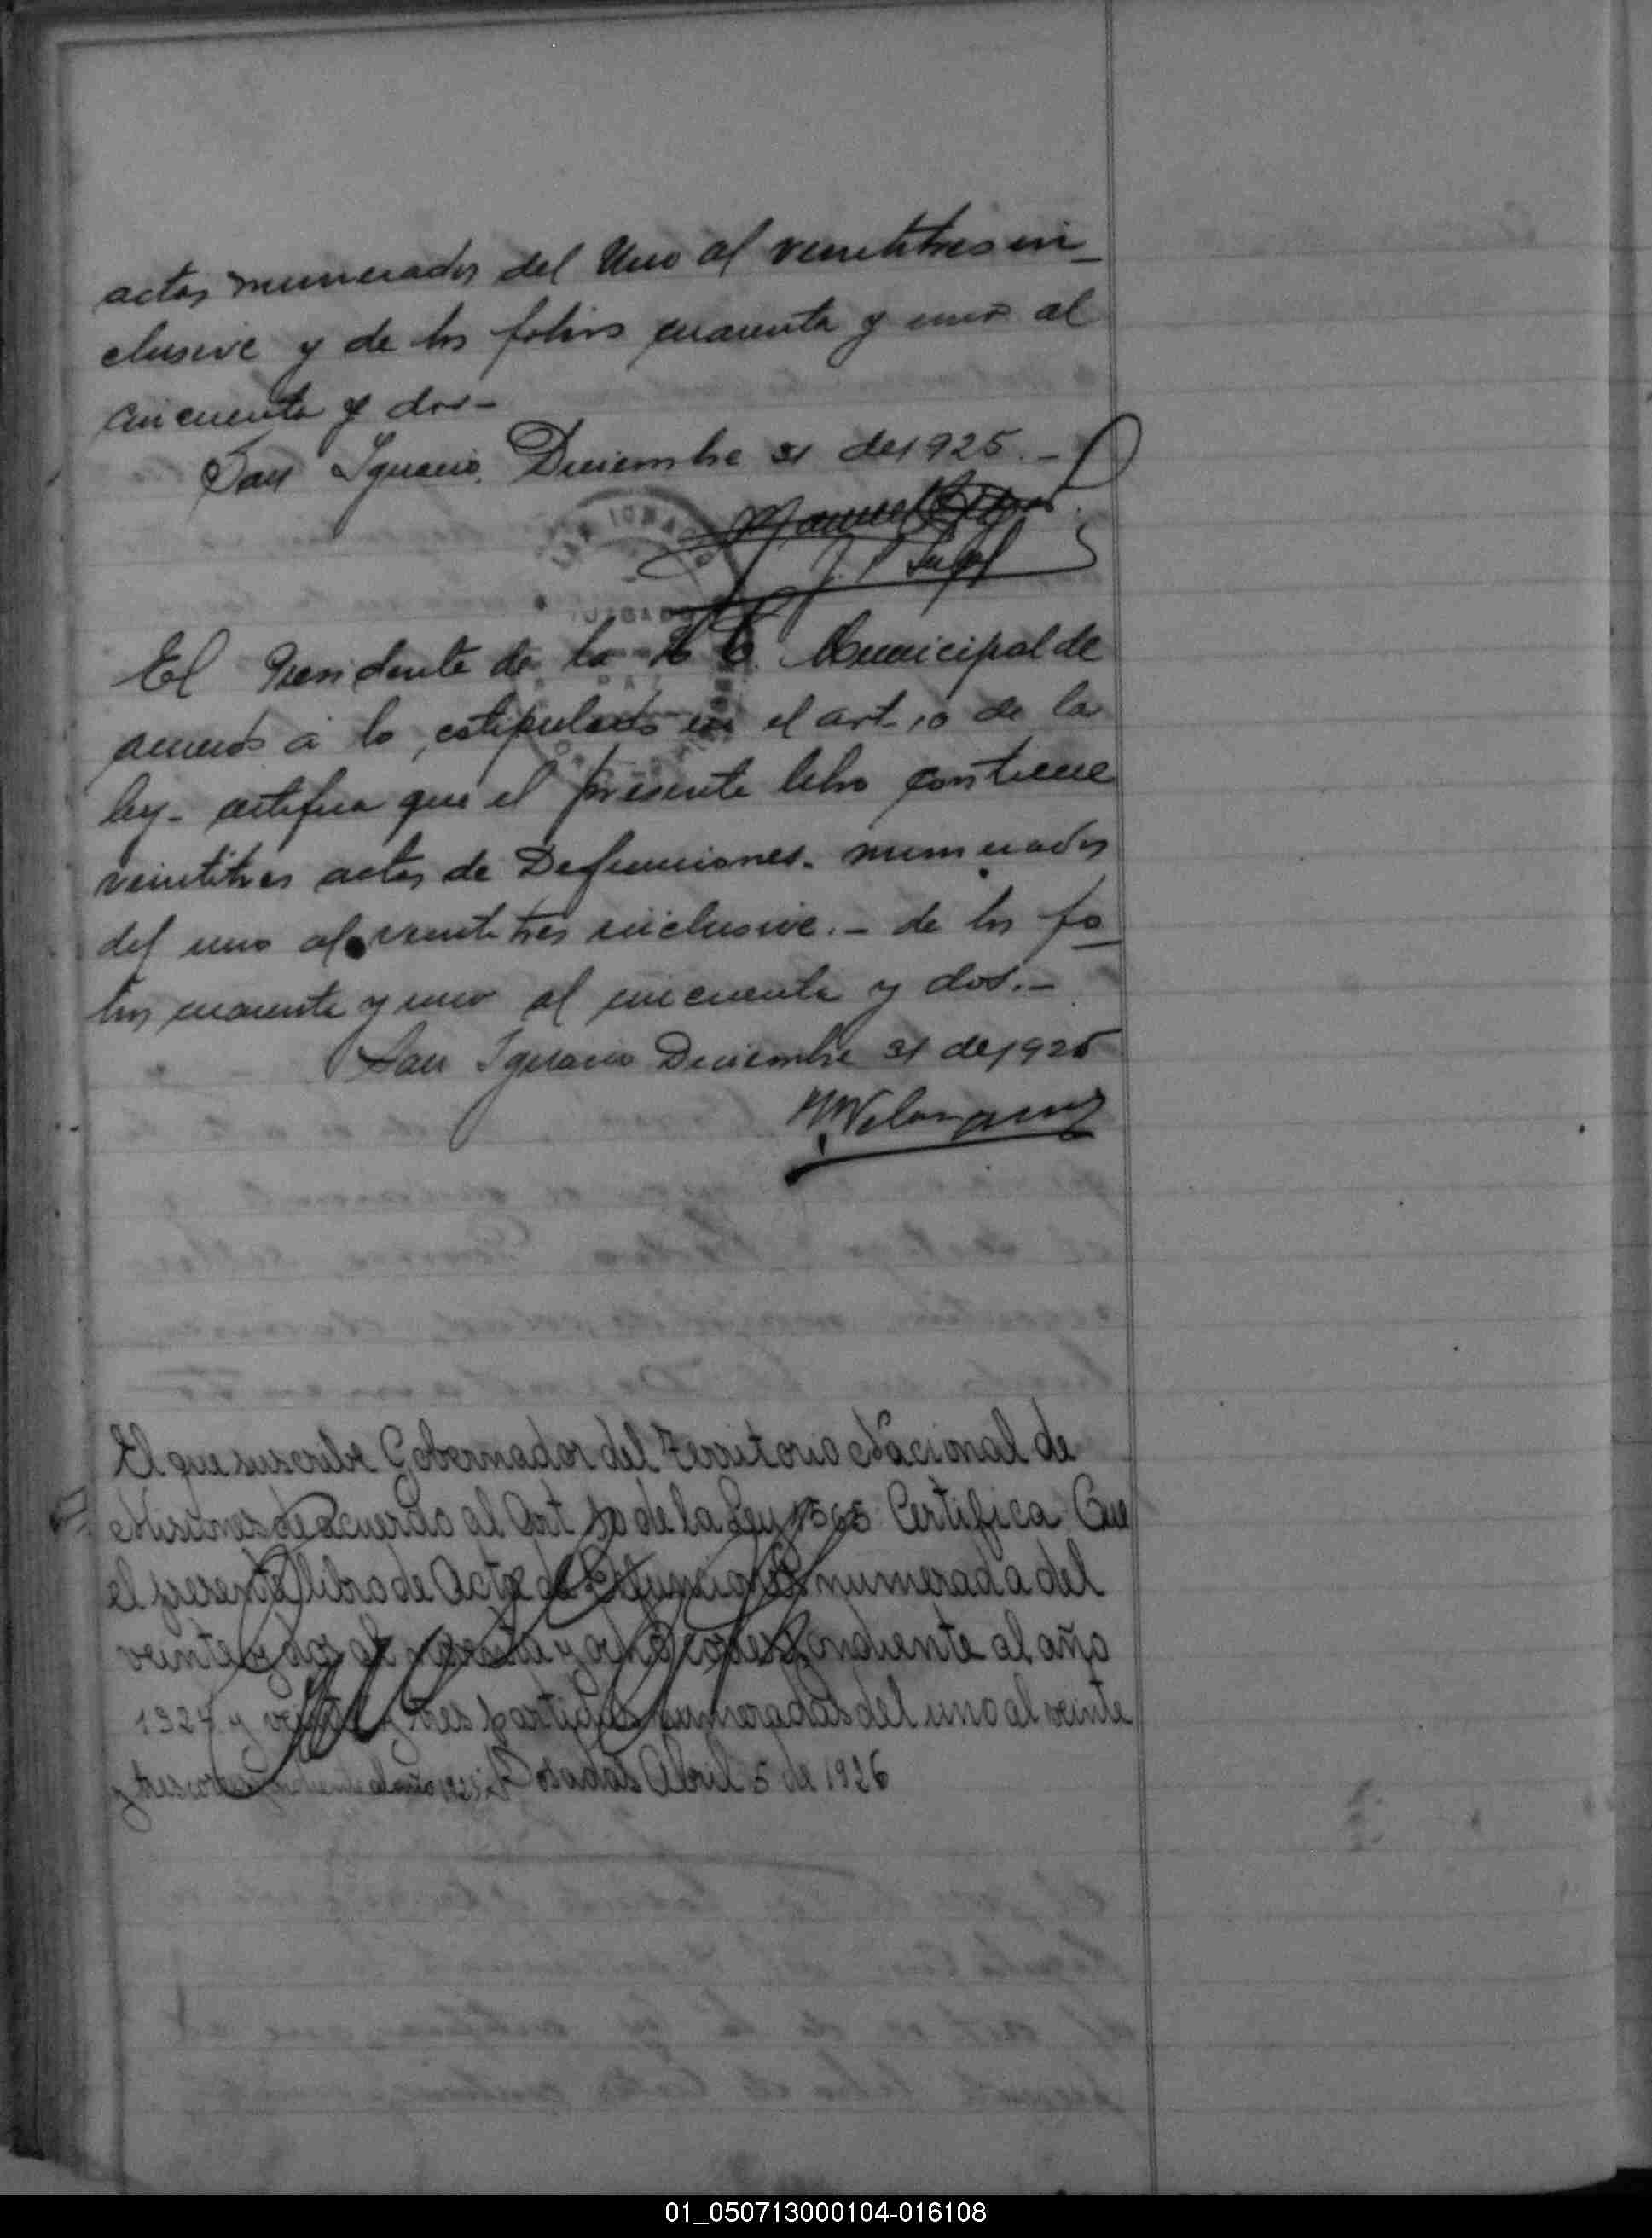 actas numerados del Uno al veintitres in_
clusive y de los folios cuarenta y uno al
cincuenta y dos-
San Ignacio, Diciembre 31 de 1925.-
Manuel
J. P Supl
SAN IGNACIO
JUZGADO
El Presidente de la Municipal de
acuerdo a lo estipulado en el art 10 de la
ley- certifica que el presente libro contiene
veintitres actas de Defunciones- numerados
del uno al veintitres inclusive.- de los fo_
lios cuarenta y uno al cincuenta y dos.-
San Ignacio Diciembre 31 de 1925
El que suscribe Gobernador del Territorio Nacional de
Misiones de acuerdo al Art 10 de la Ley 1565 Certifica Que
el presente libro de Acta de Defunciones numerada del
veinte y dos al y correspondiente al año
192 y veinte y tres partidas numeradas del uno al veinte
y tres correspondiente al año 1925. Posadas Abril 5 de 1926
01_050713000104-016108